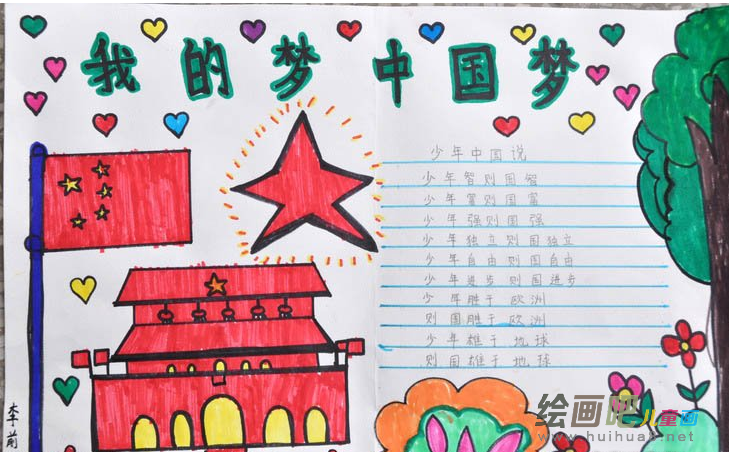 我的梦 中国梦
少年中国说
少年智则国智
少年富则国富
少年强则国强
少年独立则国独立
少年自由则国自由
少年进步则国进步
少年胜于欧洲
则国胜于欧洲
少年雄于地球
则国雄于地球
李前
绘画吧儿童画
www.huihua8.net